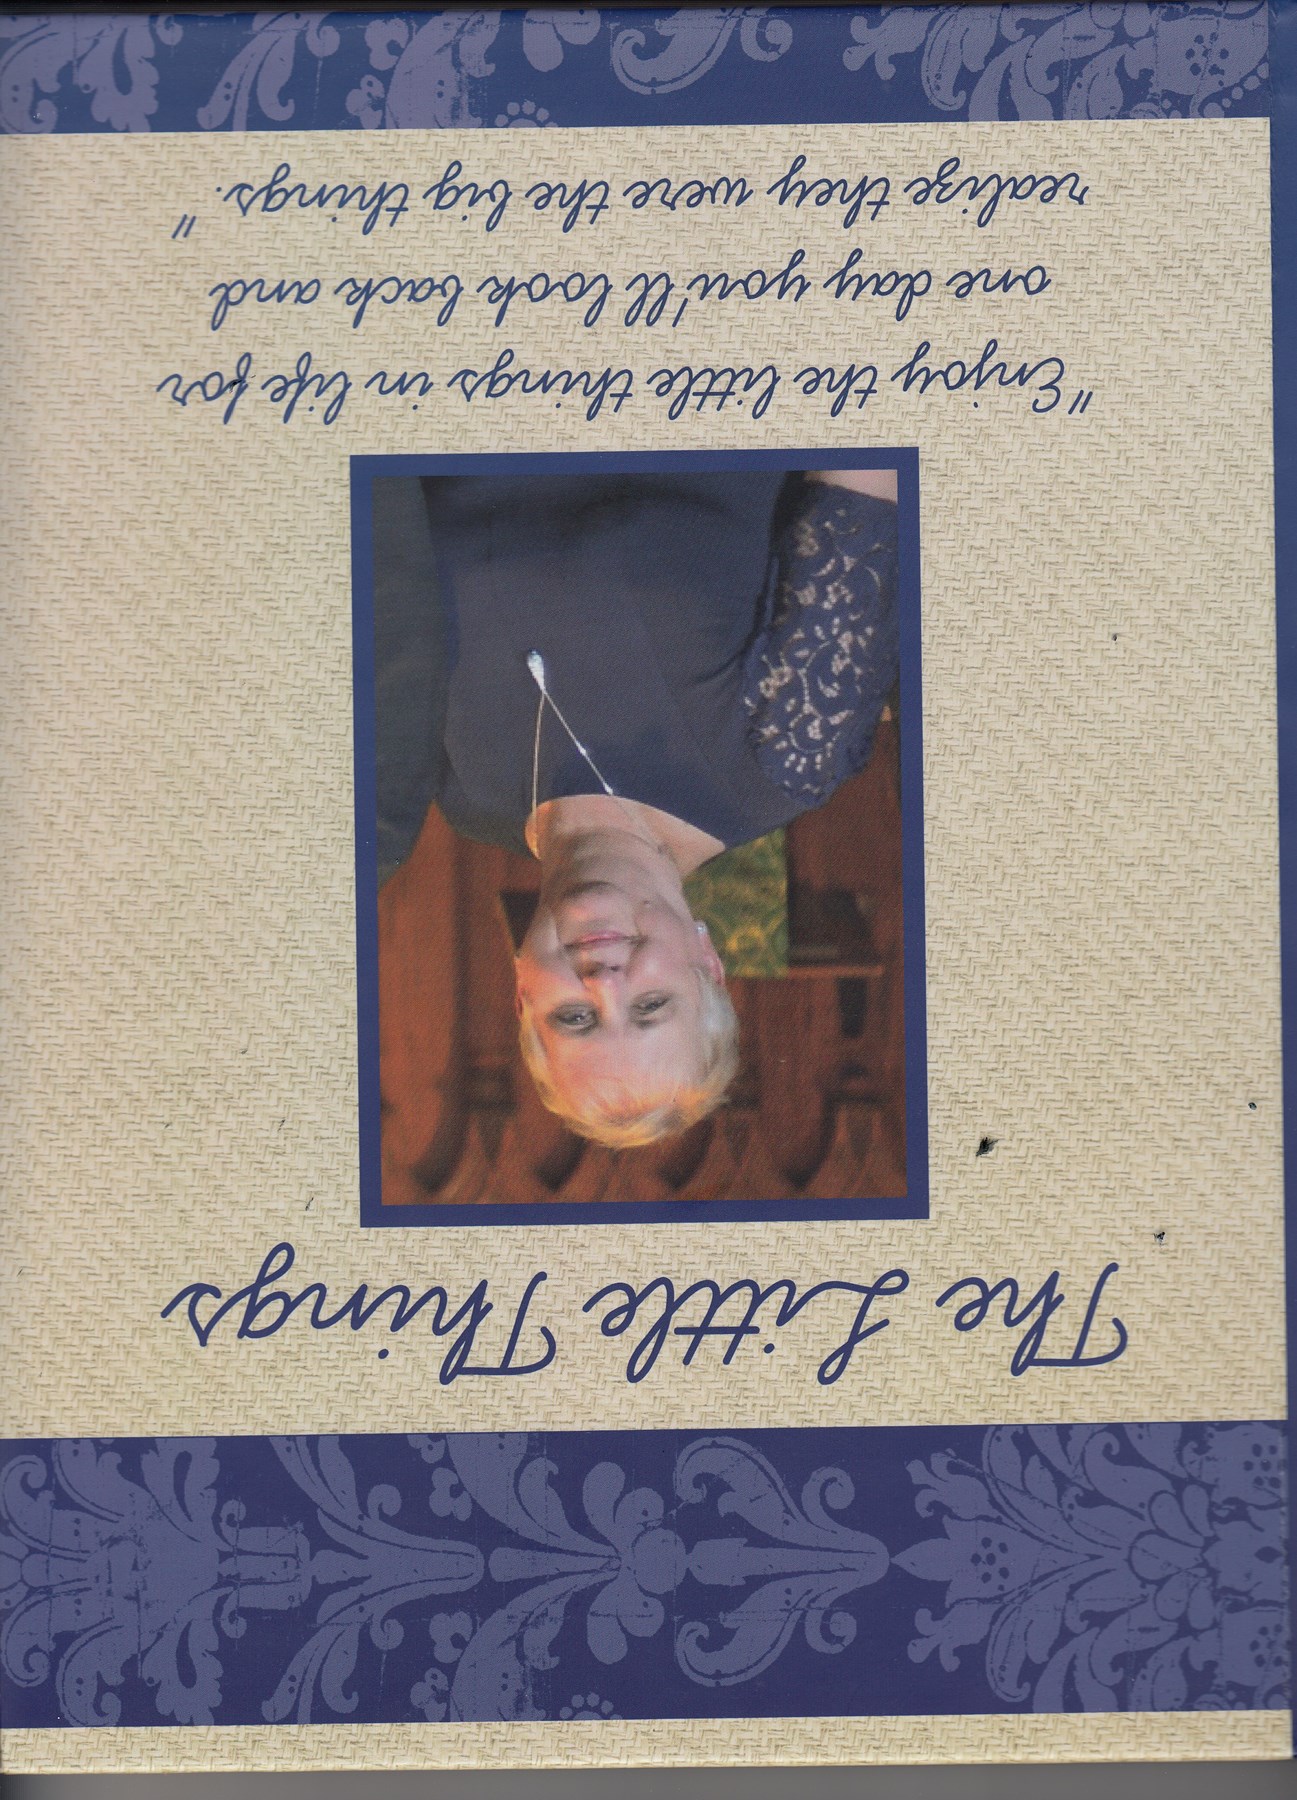 The Little Things
"Enjoy the little things in life for
one day you'll look back and
realize they were the big things."